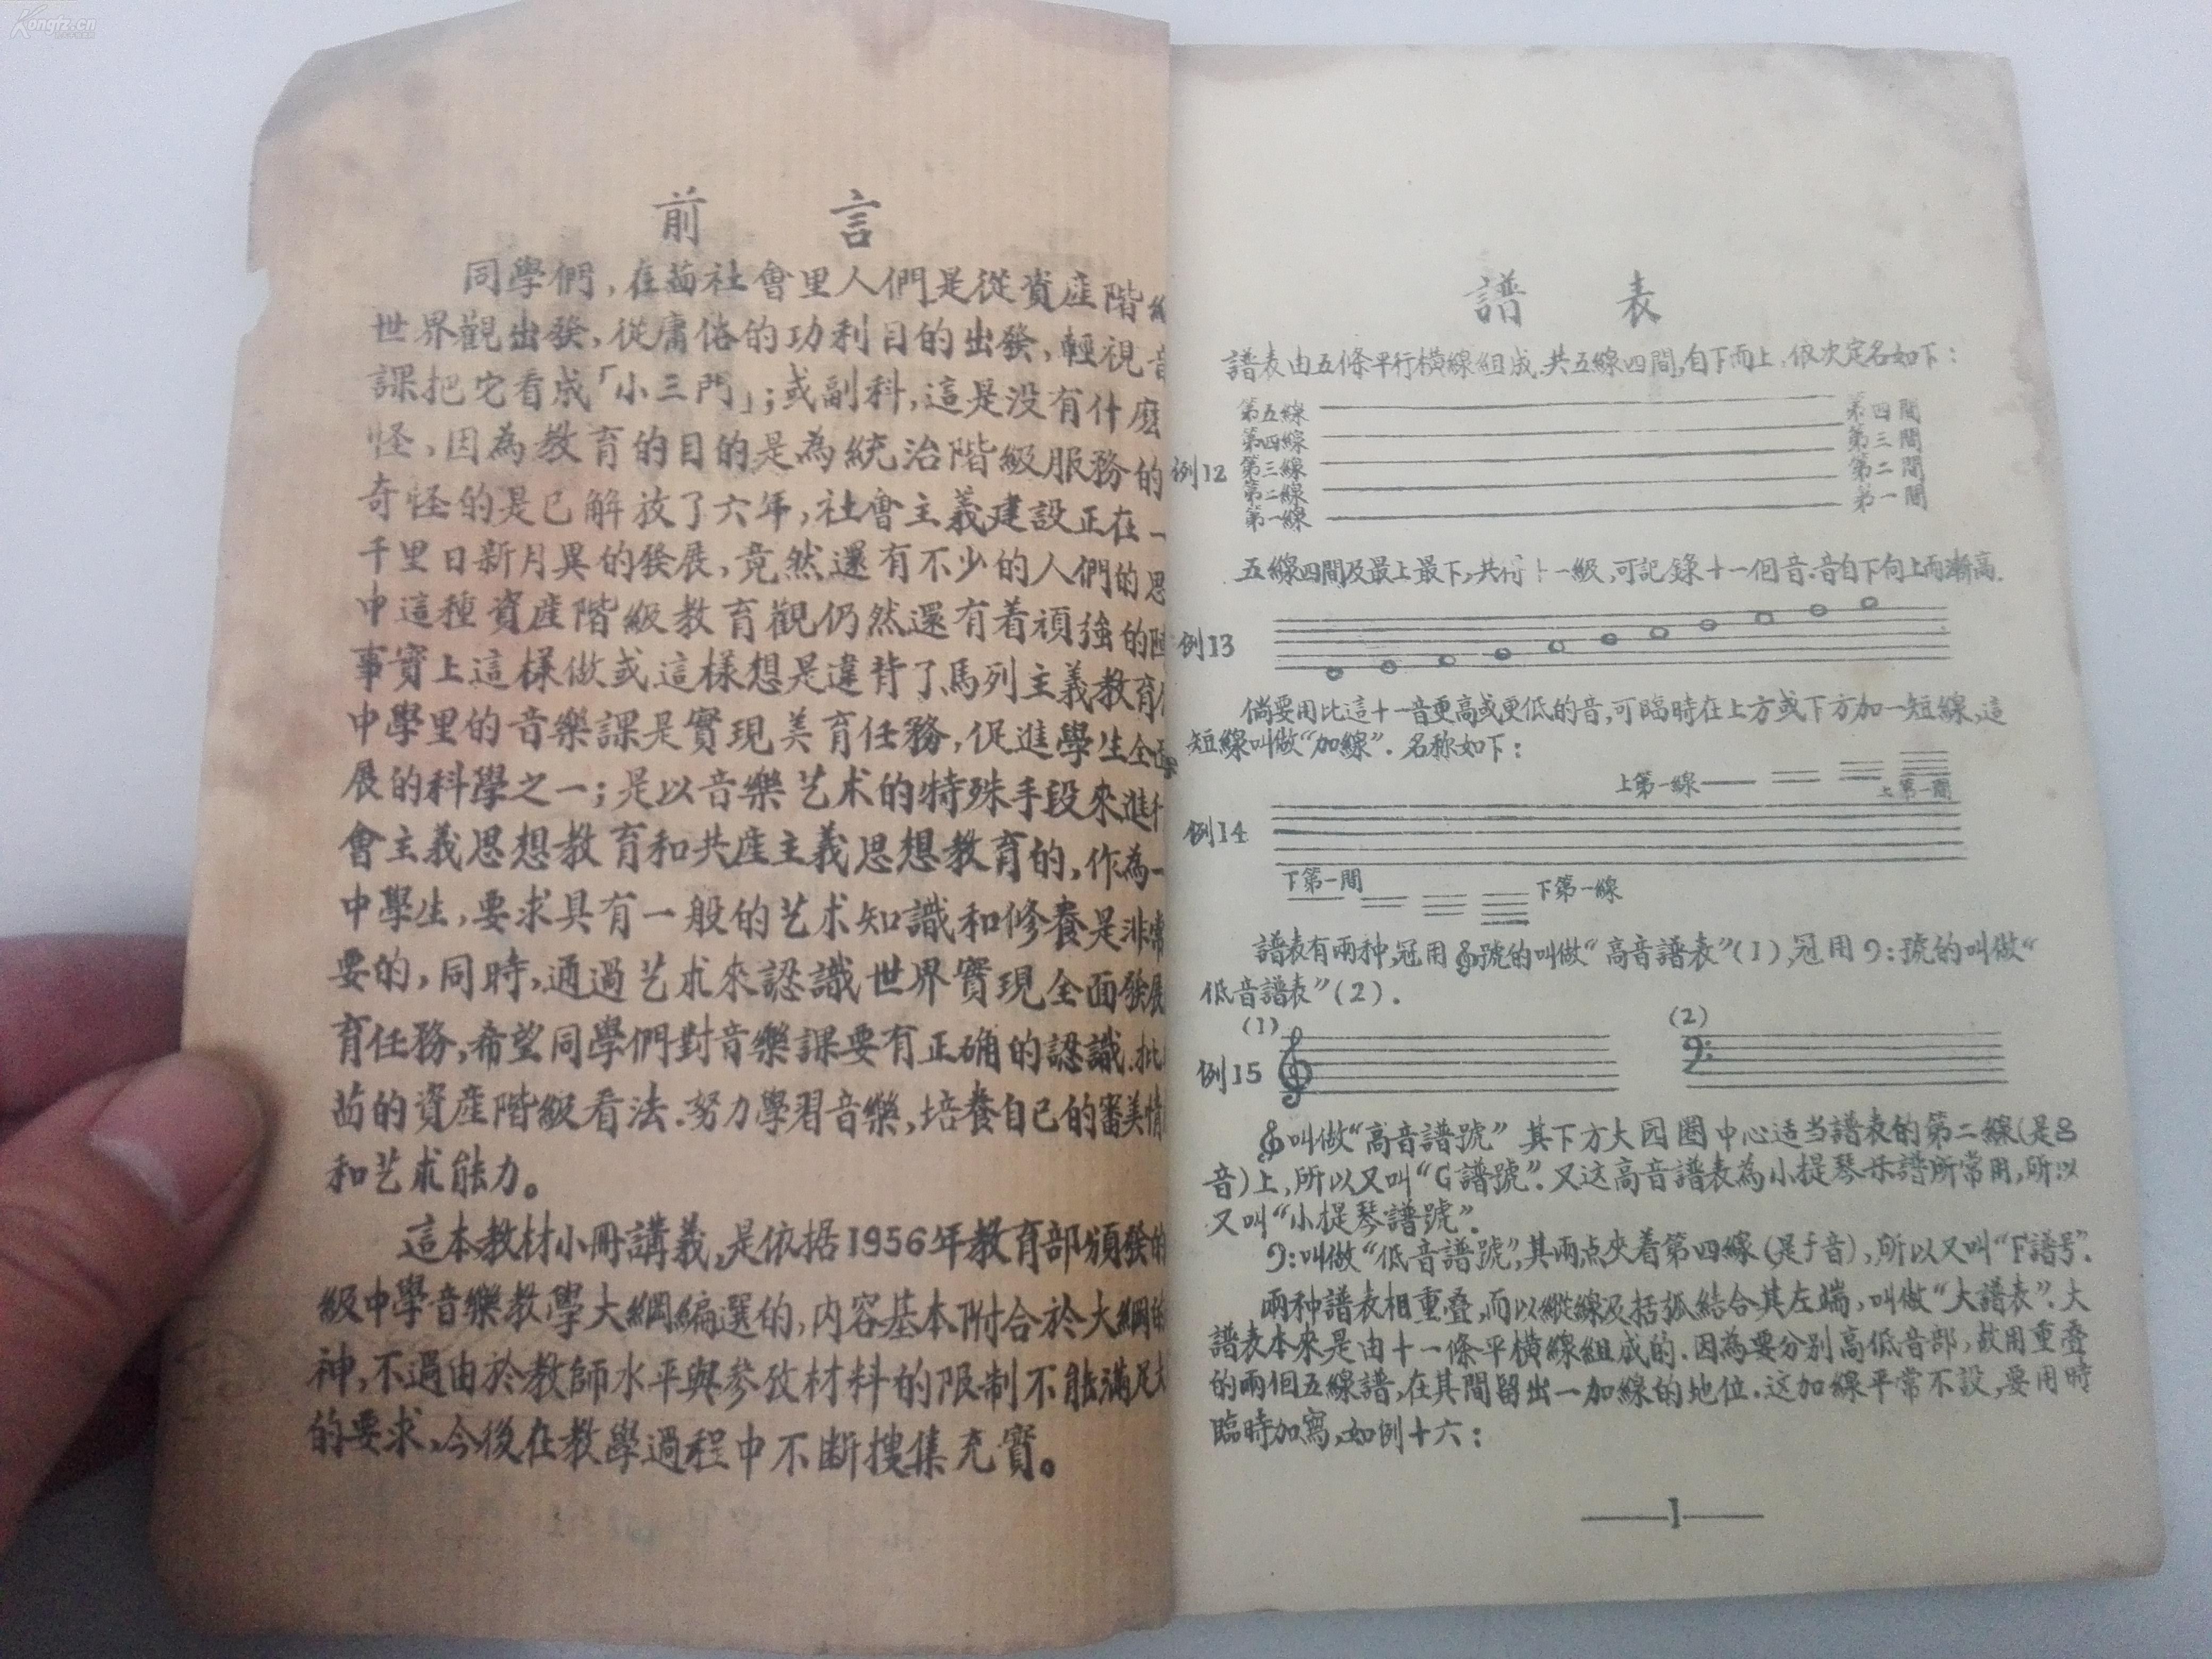 Kongfz.cn
前 言
同學們，在旧社會里人們是從資産階級
世界觀出發，從庸俗的功利目的出發，輕視音
課把它看成「小三門」；或副科，這是没有什麽
怪，因為教育的目的是為統治階級服務的
奇怪的是已解放了六年，社會主義建設正在一
千里日新月異的發展，竟然還有不少的人們的思
中這種資産階級教育觀仍然還有着頑強的
事實上這様做或這樣想是違背了馬列主義教育
中學里的音樂課是實現美育任務，促進學生全面
展的科學之一；是以音樂艺术的特殊手段來進行
會主義思想教育和共産主義思想教育的，作為一
中學生，要求具有一般的艺术知識和修養是非常
要的，同時，通過艺术來認識世界實現全面發展
育任務，希望同學們對音樂課要有正确的認識．批
的資産階級看法．努力學習音樂，培養自已的審美情
和艺术能力。
這本教材小冊講義，是依据1956年教育部頒發的
級中學音樂教學大綱編選的，内容基本附合於大綱的
神，不過由於教師水平與参攷材料的限制不能滿足大
的要求，今後在教學過程中不断搜集充實。
譜 表
譜表由五條平行横線組成．共五線四間，自下而上，依次定名如下：
第五線 第四間
第四線 第三間
例12 第三線 第二間
第二線 第一間
第一線
五線四間及最上最下，共得十一級，可記録十一個音．音自下向上而漸高．
例13
倘要用比這十一音更高或更低的音，可臨時在上方或下方加一短線，這
短線叫做“加線”．名称如下：
上第一線
上第一間
例14
下第一間
下第一線
譜表有兩种，冠用𝄞號的叫做“高音譜表”（1），冠用𝄢號的叫做“
低音譜表”（2）．
（1） （2）
例15
𝄞叫做“高音譜號” 其下方大园圈中心适当譜表的第二線（是g
音）上，所以又叫“G譜號”．又这高音譜表為小提琴乐譜所常用，所以
又叫“小提琴譜號”．
𝄢叫做“低音譜號”，其兩点夾着第四線（是f音），所以又叫“F譜号”．
兩种譜表相重叠，而以縱線及括弧結合其左端，叫做“大譜表”．大
譜表本來是由十一條平横線組成的．因為要分别高低音部，故用重叠
的兩個五線譜，在其間留出一加線的地位．这加線平常不設，要用時
臨時加寫，如例十六：
1